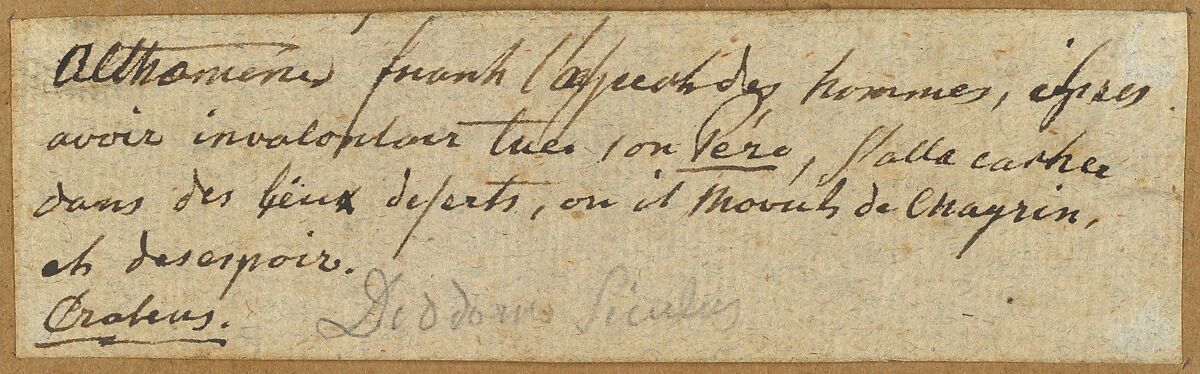 Althomenes fuiant l'aspect des hommes, apres
avoir involontair tuer son Pere, s'alla cacher
dans des lieux deserts, ou il Mourut de Chagrin,
et desespoir.
Crateus. Diodorus Siculus